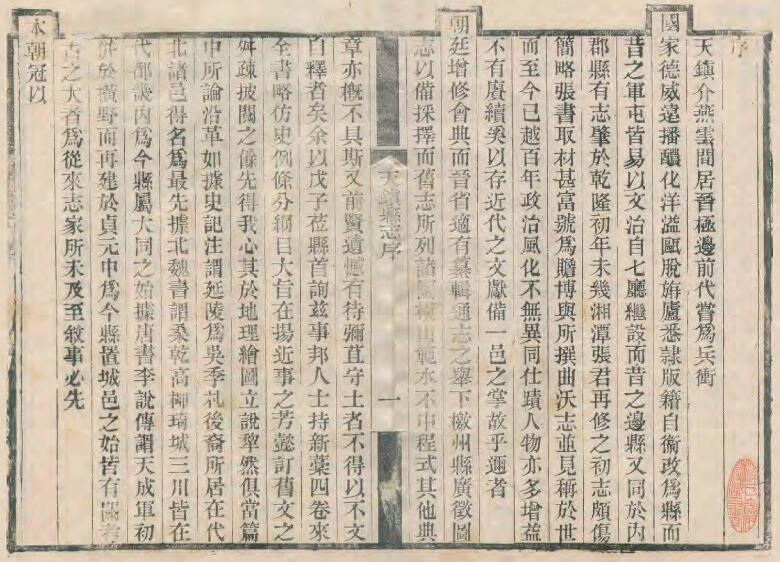 序
天鎮介燕雲間居晉極邊前代嘗爲兵衝
國家德威遠播醲化洋溢甌脫旃盧悉隸版籍自衞政爲縣而
昔之軍屯皆易以文治自七廳繼設而昔之邊縣又同於内
郡縣有志肇於乾隆初年未幾湘潭張君再修之初志頗傷
簡略張書取材甚富號爲贍博與所撰曲沃志並見稱於世
而至今已越百年政治風化不無異同仕蹟人物亦多增益
不有賡續奚以存近代之文獻備一邑之掌故乎邇者
朝廷增修會典而晉省適有纂輯通志之舉下檄州縣廣徵圖
志以備採擇而舊志所列諸圖 山範水不中程式其他典
天鎮縣志序
一
章亦槪不具斯又前賢遺憾有待彌苴守土者不得以不文
自釋者矣余以戊子莅縣首詢兹事邦人士持新藁四卷來
全書略仿史例條分綱目大旨在揚近事之芳懿訂舊文之
舛疎披閱之餘先得我心其於地理繪圖立說犂然俱當篇
中所論沿革如據史記注謂延陵爲吳季札後裔所居在代
北諸邑得名爲最先據北魏書謂桑乾高柳琦城三川皆在
代都畿内爲今縣屬大同之始據唐書李說傳謂天成軍初
併於橫野而再建於貞元中爲今縣置城邑之始皆有關考
古之大者爲從來志家所未及至敘事必先
本朝冠以